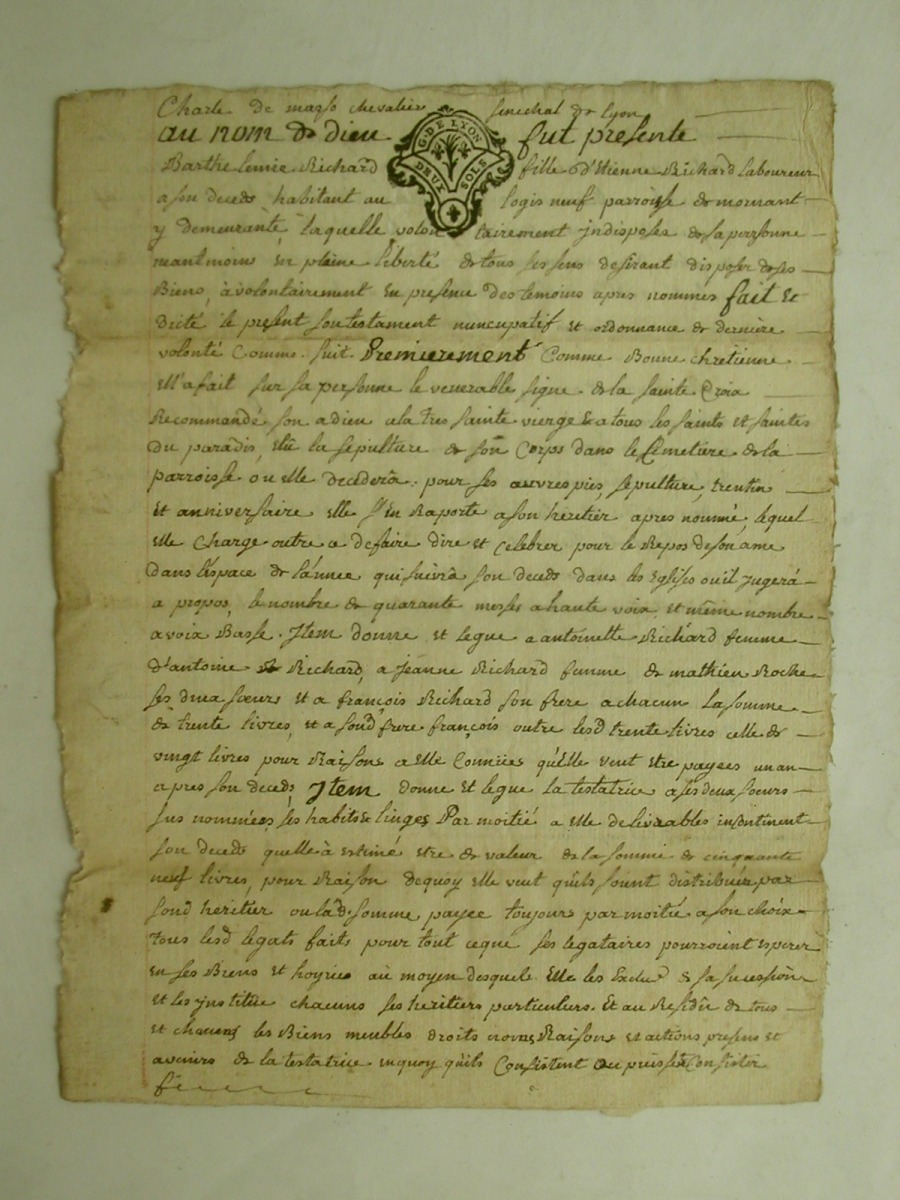 Charle de masso chevalier senechal de lyon
au nom de dieu fut presente
G. DE LYON
DEUX SOLS
Barthelemie Richard fille d'Etienne Richard laboureur
a son deceds habitant au logis neuf parroisse de mornant
y demeurante, laquelle volontairement indisposée de sa personne
neantmoins en pleine liberté de tous ses sens desirant disposer de ses
Biens, à volontairement en presence des temoins apres nommés fait et
dicté le present son testament nuncupatif et ordonnance de derniere
volonté comme suit. Premierement comme Bonne chretienne
Ell'a fait sur sa personne le venerable signe de la sainte Croix
Recommandé son a dieu a la tres sainte vierge & a tous les saints et saintes
Du paradis, elû la sepulture de son Corps dans le Cimetiere de la
parroisse ou elle decederà. pour ses œuvres pies, sepulture, trentin
et anniversaire elle s'En Raporte a son heritier apres nommé, lequel
elle charge outre ce de faire dire et celebrer pour le Repos de son ame
dans l'Espace de l'année qui suivrà son deceds dans les Eglises ou il Jugerà
a propos, le nombre de quarante messes a haute voix et même nombre
a voix Basse. Item donne et legue a antoinette Richard femme
d'antoine Richard, a Jeanne Richard femme de mathieu Roche
ses deux sœurs et a françois Richard son frere a chacun la somme
de trente livres, et a sond frere françois outre lesd trente livres celle de
vingt livres pour Raisons a elle Connües qu'elle veut etre payées un an
apres son deceds, Item donne et legue la testatrice a ses deux sœurs
sus nommées ses habits & linges Par moitié a elle delivrables incontinent
son deceds quelle à estimé etre de valeur de la somme de cinquante
neuf livres, pour Raison dequoy elle veut qu'ils soient distribués par
sond heritier ou lad. somme payée toujours par moitié a son choix
Tous lesd legats faits pour tout ceque ses legataires pourroient esperer
en ses Biens et hoyries au moyen desquels Elle les Exclud de sa sucession
et les institue chacuns ses heritiers particuliers. Et au Residu de tous
et chacuns les Biens meubles droits noms Raisons et actions presens et
avenirs de la testatrice en quoy qu'ils Consistent ou puissent Consister